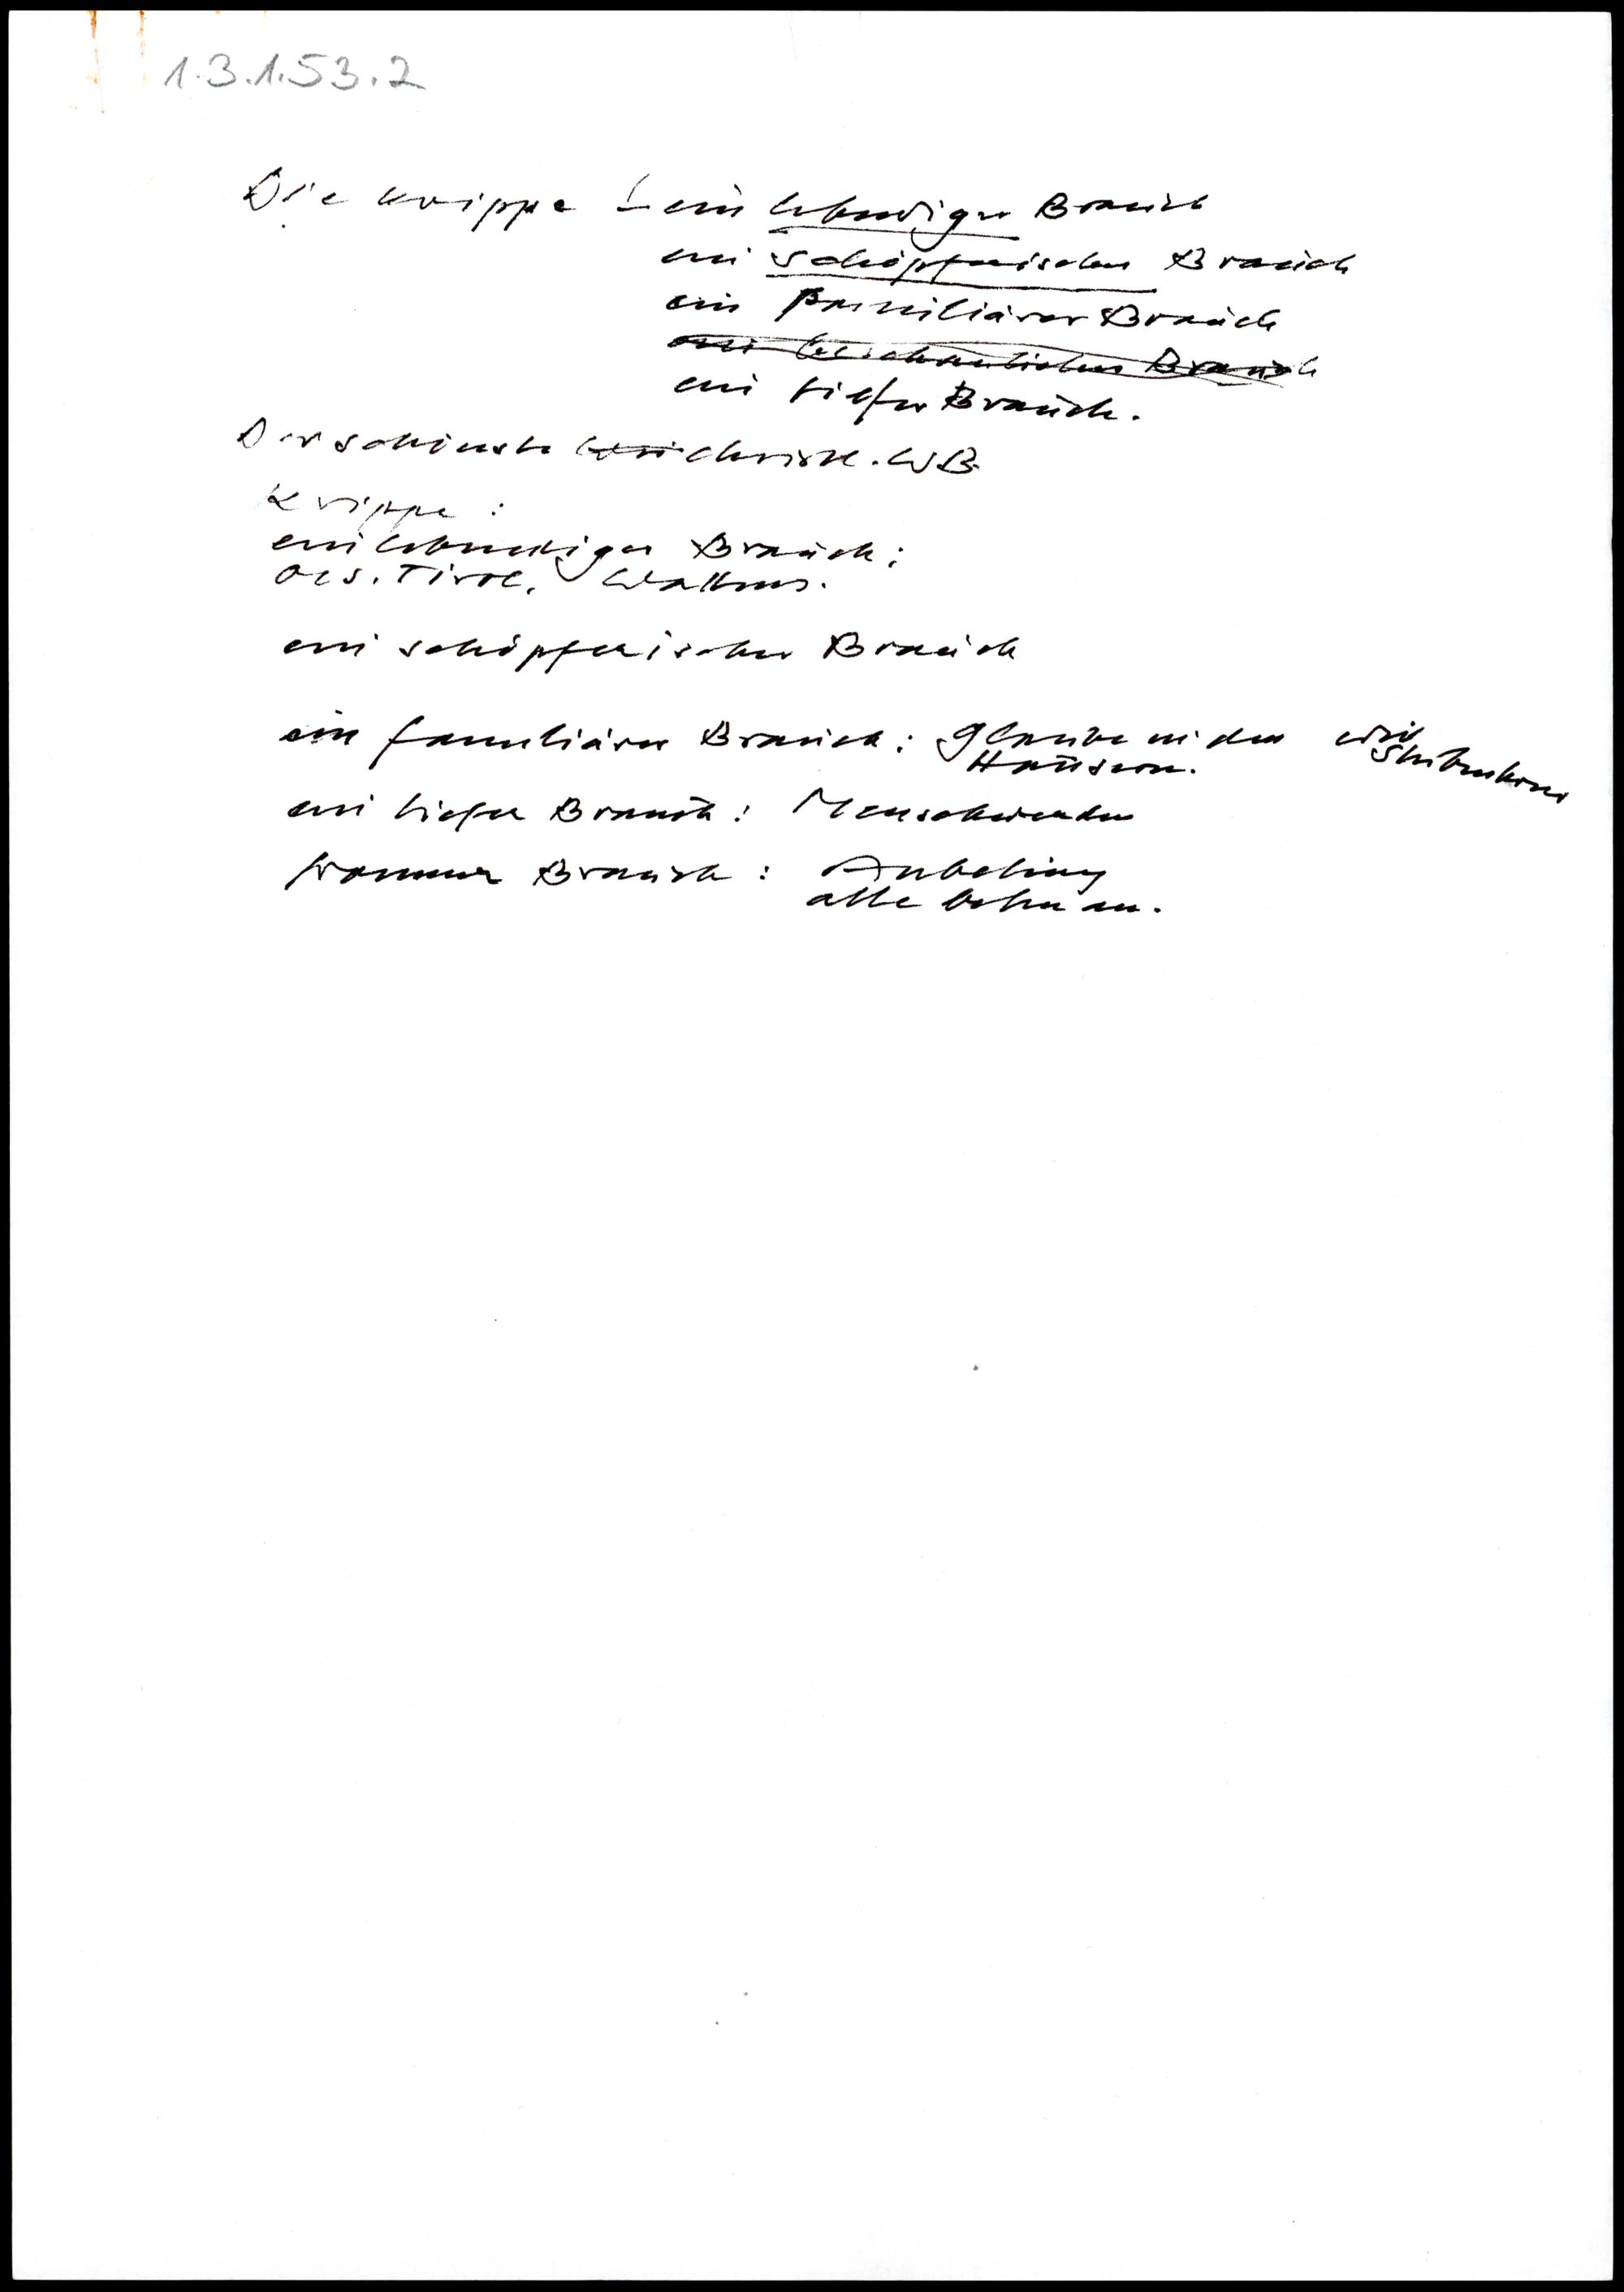 1.3.1.53.2
Die Krippe – ein lebendiger Brauch
ein schöpferischer Brauch
ein familiärer Brauch
ein beschaulicher Brauch
ein tiefer Brauch.
Der schönste christl. WB.
Krippe:
ein lebendiger Brauch:
Oes. Tirol, Wattens.
ein schöpferischer Brauch
ein familiärer Brauch: Glaube in den
Häusern.
ein tiefer Brauch: Menschwerden
frommer Brauch: Anbetung
alle beten an.